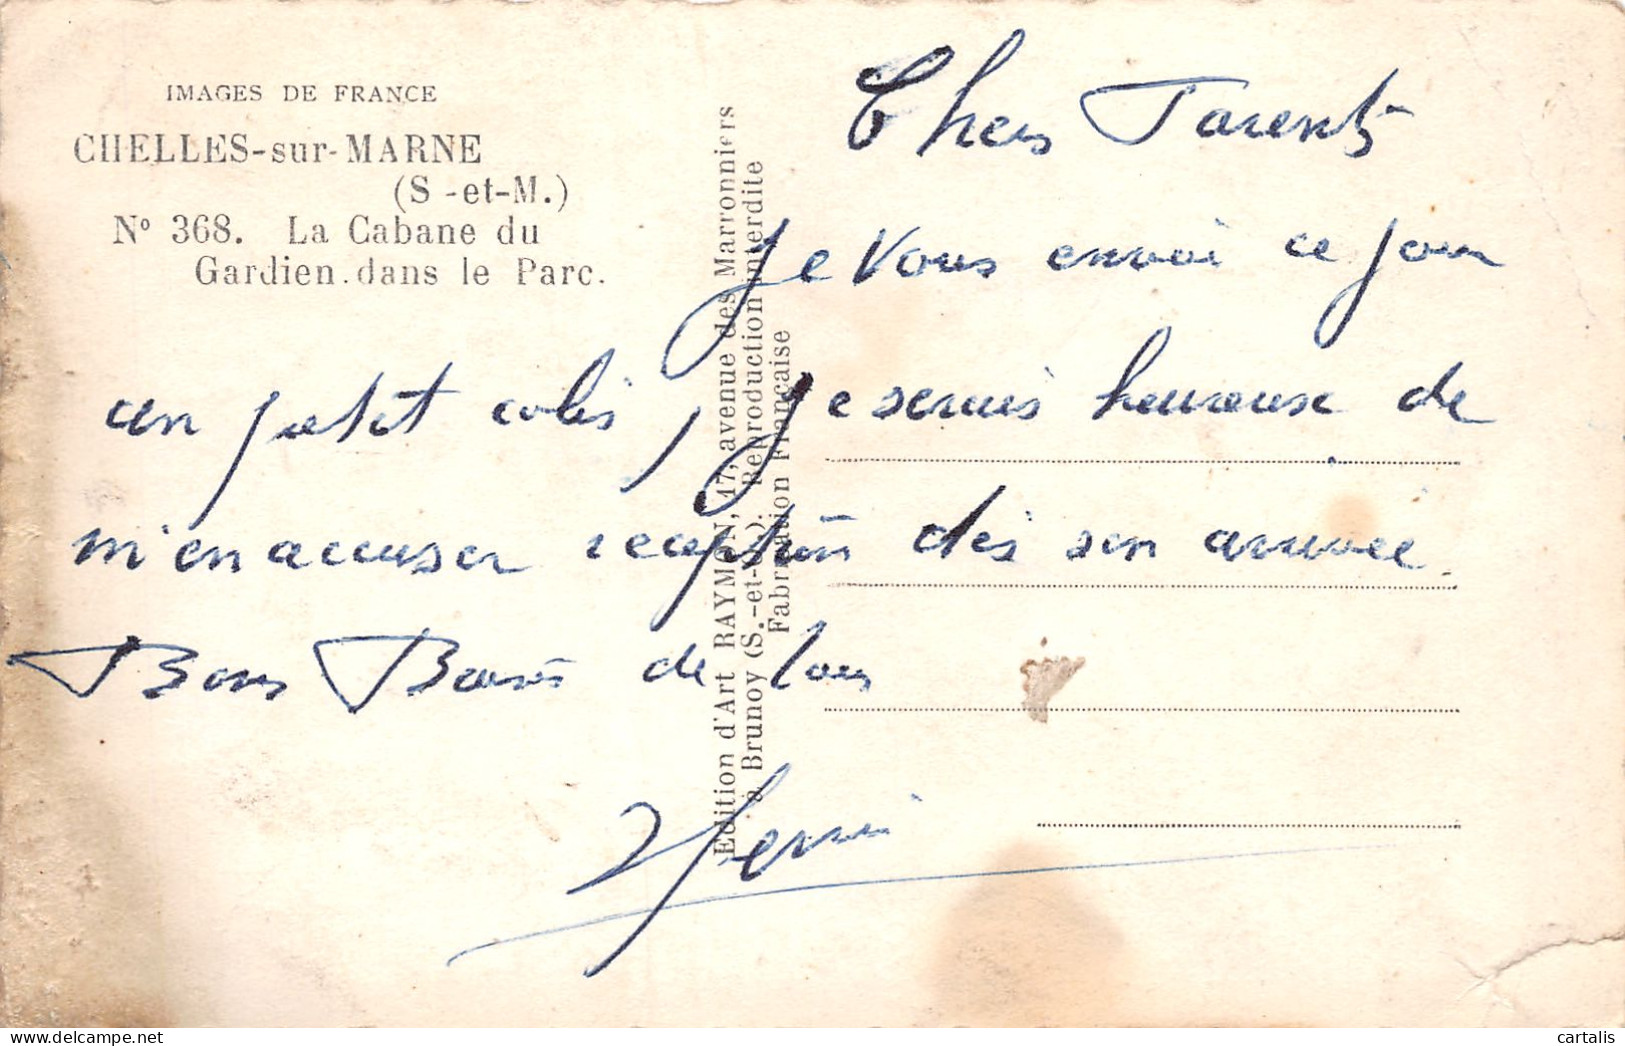 IMAGES DE FRANCE
CHELLES-sur-MARNE
(S-et-M.)
N° 368. La Cabane du
Gardien dans le Parc.
Edition d'Art RAYMON, 17, avenue des Marronniers
à Brunoy (S.-et-O.) Reproduction interdite
Fabrication Française
Chers Parents
Je vous envoi ce jour
un petit colis, je serais heureuse de
m'en accuser réception dès son arrivée.
Bons Baisers de tous
cartalis